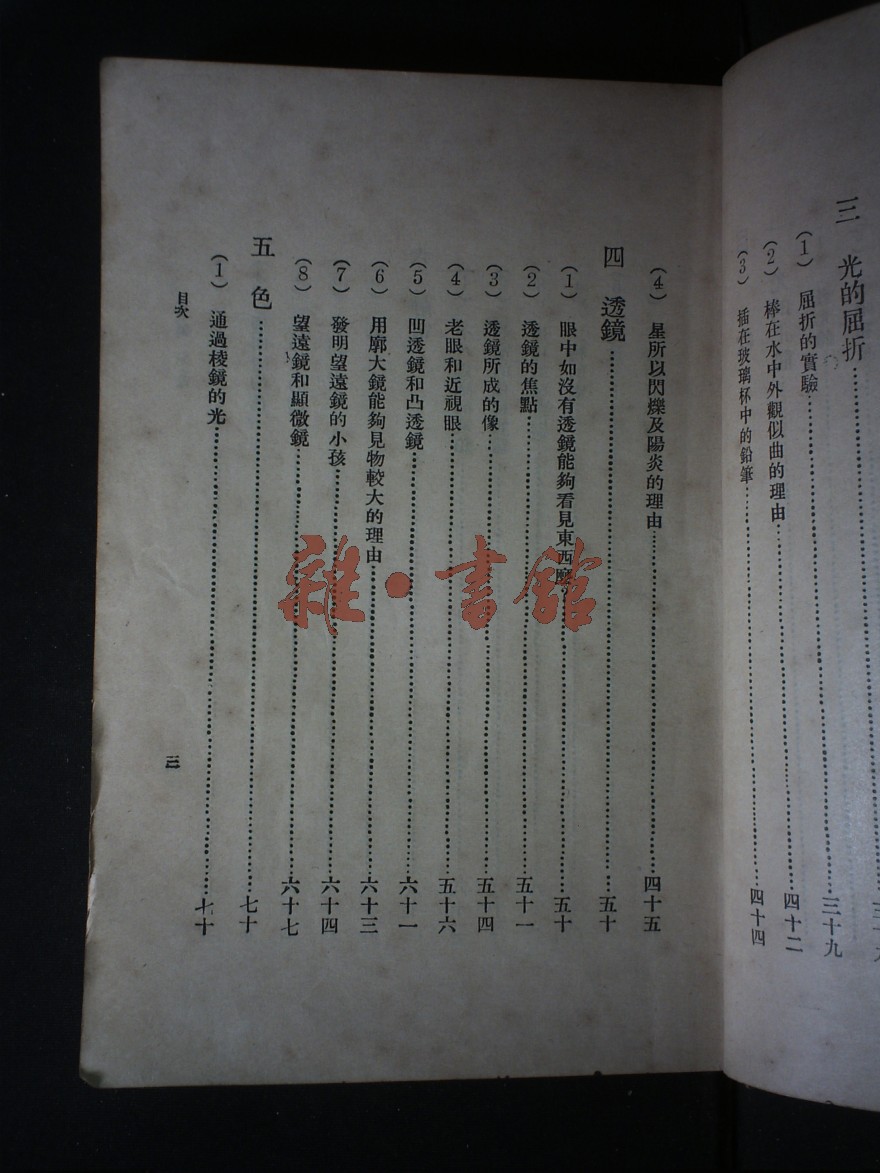 三　光的屈折……三十九
(1)　屈折的實驗……三十九
(2)　棒在水中外觀似曲的理由……四十二
(3)　插在玻璃杯中的鉛筆……四十四
(4)　星所以閃爍及陽炎的理由……四十五
四　透鏡……五十
(1)　眼中如沒有透鏡能夠看見東西麼……五十
(2)　透鏡的焦點……五十一
(3)　透鏡所成的像……五十四
(4)　老眼和近視眼……五十六
(5)　凹透鏡和凸透鏡……六十一
(6)　用廓大鏡能夠見物較大的理由……六十三
(7)　發明望遠鏡的小孩……六十四
(8)　望遠鏡和顯微鏡……六十七
五　色……七十
(1)　通過棱鏡的光……七十
目次
三
雜·書館